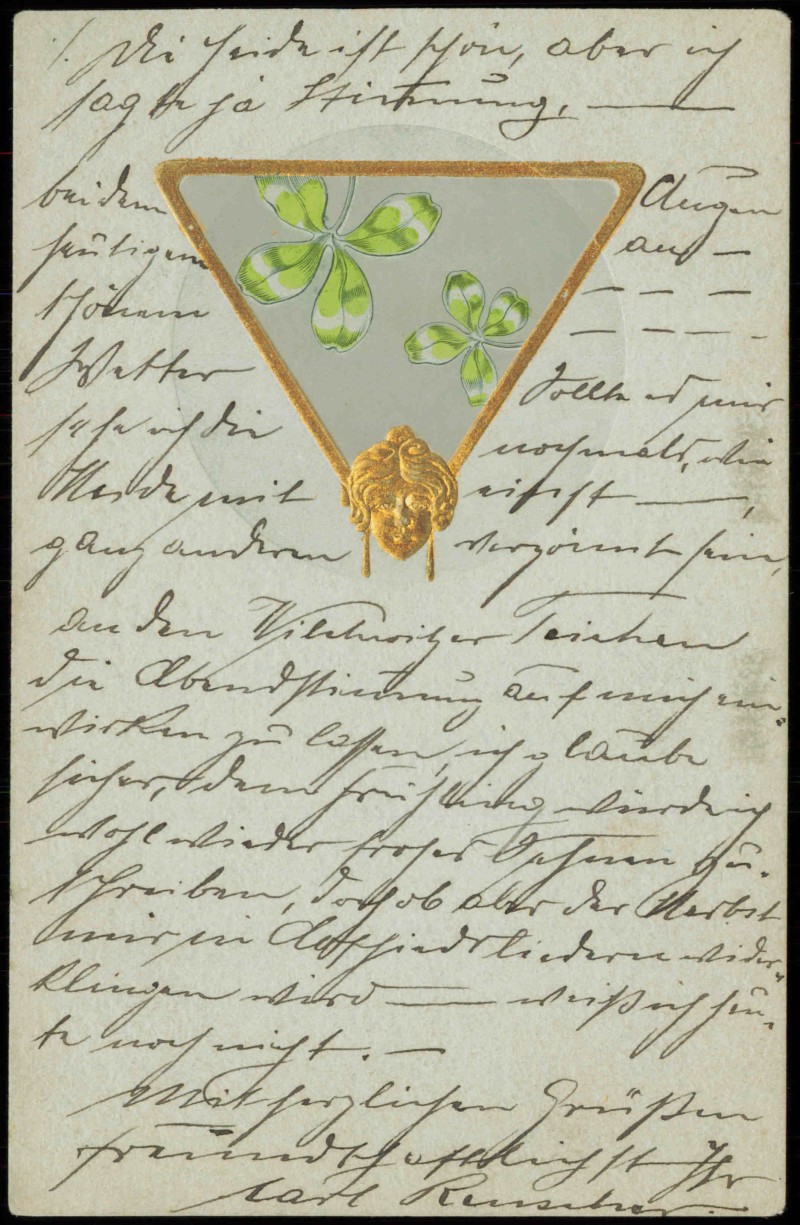 /. Die Heide ist schön, aber ich
sagte ja Stimmung, —
bei dem
heutigem
schönem
Wetter
sehe ich die
Heide mit
ganz anderen
Augen
an —
— — —
— — — -
Sollte es mir
nochmals, wie
einst —,
vergönnt sein,
an den Teichen
die Abendstimmung auf mich ein-
wirken zu lassen, ich glaube
sicher, dem Frühling würde ich
wohl wieder frohes Sehnen zu-
schreiben, doch ob aber der Herbst
mir in Abschiedsliedern wider-
klingen wird — weiß ich heu-
te noch nicht. —
Mit herzlichen Grüßen
freundschaftlichst Ihr
Carl